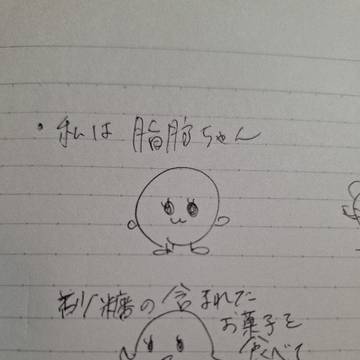 ・私は 脂肪ちゃん
砂糖の含まれた
お菓子を
食べて